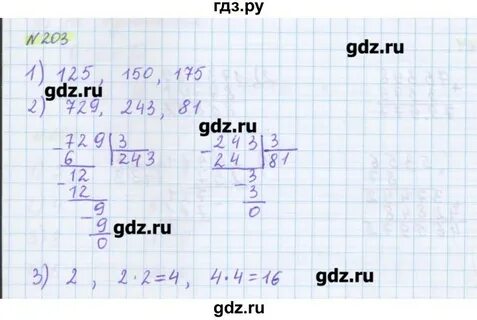 гдз.ру
N 203
1) 125, 150, 175
gdz.ru gdz.ru
2) 729, 243, 81
gdz.ru gdz.ru
- 729 | 3
6 | 243
- 12
12
- 9
9
0
- 243 | 3
24 | 81
- 3
3
0
gdz.ru
gdz.ru
3) 2, 2·2=4, 4·4=16
gdz.ru